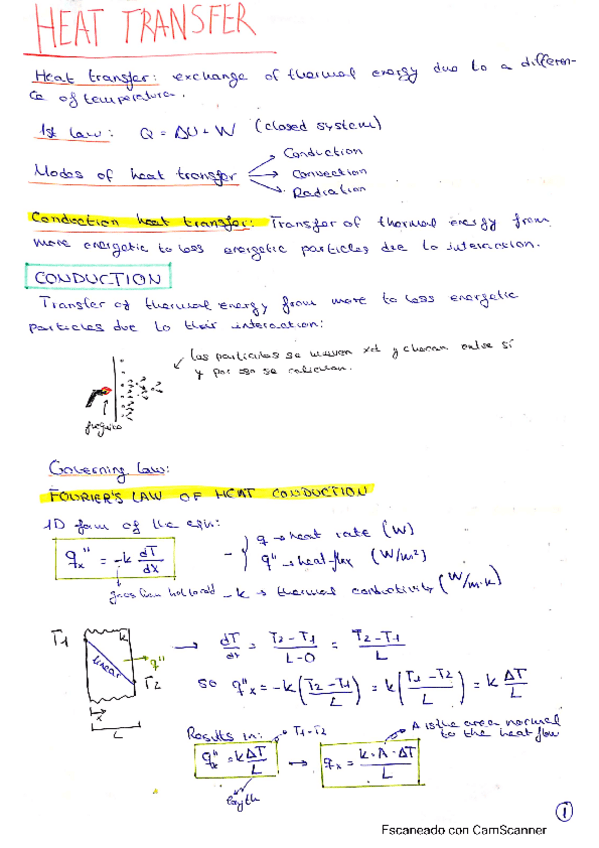 HEAT TRANSFER
Heat transfer: exchange of thermal energy due to a differen-
ce of temperature.
1st law: Q = ΔU + W (closed system)
Modes of heat transfer → Conduction
→ Convection
→ Radiation
Conduction heat transfer: Transfer of thermal energy from
more energetic to less energetic particles due to interaction.
CONDUCTION
Transfer of thermal energy from more to less energetic
particles due to their interaction:
las partículas se mueven y chocan entre sí
y por eso se calientan.
fueguito
Governing law:
FOURIER'S LAW OF HEAT CONDUCTION
1D form of the eqn:
q''x = -k dT/dx - { q → heat rate (W)
q'' → heat flux (W/m²)
k → thermal conductivity (W/m·K)
T1 k linear q'' T2 x L
→ dT/dx = T2-T1/L-0 = T2-T1/L
so q''x = -k(T2-T1/L) = k(T1-T2/L) = k ΔT/L
Results in: T1-T2 A is the area normal
to the heat flow
q''x = kΔT/L → qx = k·A·ΔT/L
length
1
Escaneado con CamScanner